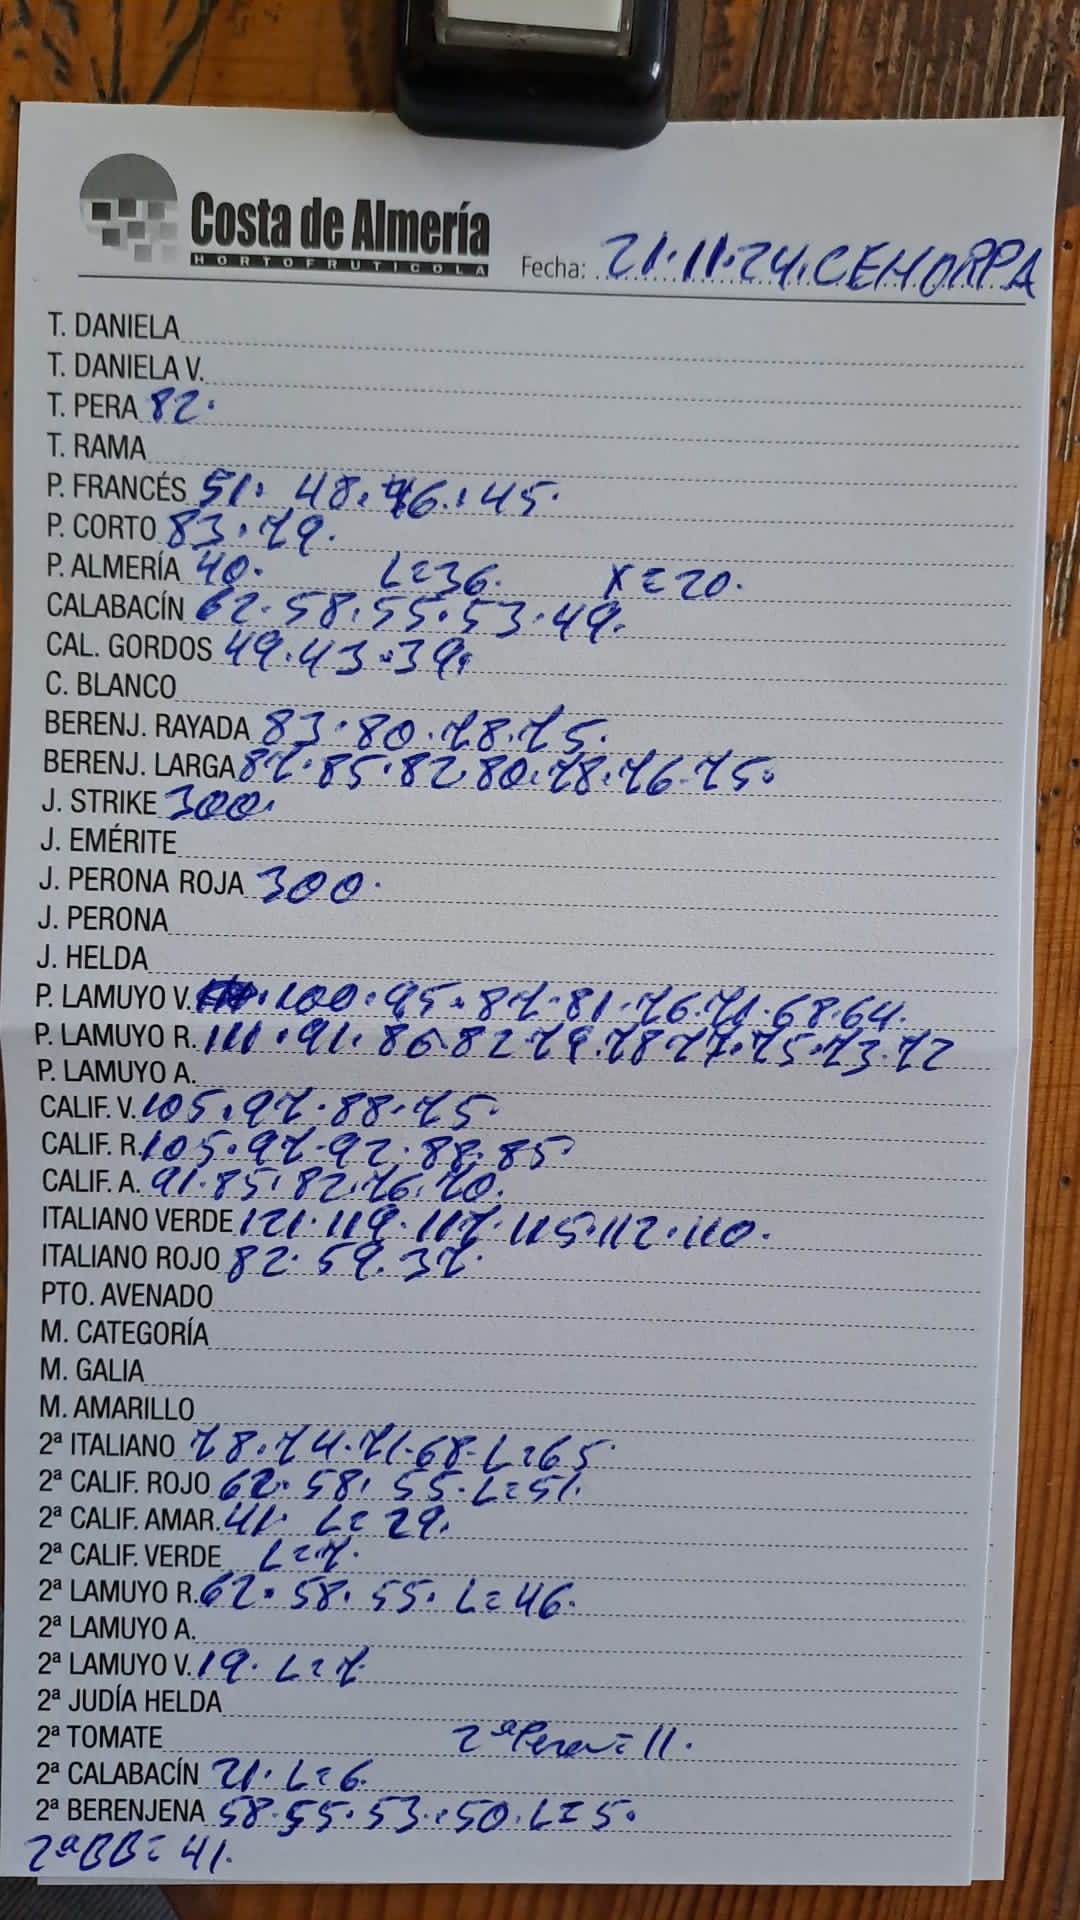 Costa de Almería
HORTOFRUTICOLA
Fecha: 21.11.24. CEHORPA
T. DANIELA
T. DANIELA V.
T. PERA 82.
T. RAMA
P. FRANCÉS 51. 48. 46. 45.
P. CORTO 83. 79.
P. ALMERÍA 40. L=36. X=20.
CALABACÍN 62. 58. 55. 53. 49.
CAL. GORDOS 49. 43. 39.
C. BLANCO
BERENJ. RAYADA 83. 80. 78. 75.
BERENJ. LARGA 87. 85. 82. 80. 78. 76. 75.
J. STRIKE 300.
J. EMÉRITE
J. PERONA ROJA 300.
J. PERONA
J. HELDA
P. LAMUYO V. 100. 95. 87. 81. 76. 71. 68. 64.
P. LAMUYO R. 111. 91. 86. 82. 79. 78. 77. 75. 73. 72
P. LAMUYO A.
CALIF. V. 105. 97. 88. 75.
CALIF. R. 105. 97. 92. 88. 85
CALIF. A. 91. 85. 82. 76. 70.
ITALIANO VERDE 121. 119. 117. 115. 112. 110.
ITALIANO ROJO 82. 59. 37.
PTO. AVENADO
M. CATEGORÍA
M. GALIA
M. AMARILLO
2ª ITALIANO 78. 74. 71. 68. L=65.
2ª CALIF. ROJO 62. 58. 55. L=51.
2ª CALIF. AMAR. 41. L=29.
2ª CALIF. VERDE L=7.
2ª LAMUYO R. 62. 58. 55. L=46.
2ª LAMUYO A.
2ª LAMUYO V. 19. L=7.
2ª JUDÍA HELDA
2ª TOMATE 2ª Pera= 11.
2ª CALABACÍN 21. L=6.
2ª BERENJENA 58. 55. 53. 50. L=5.
2ª BB= 41.